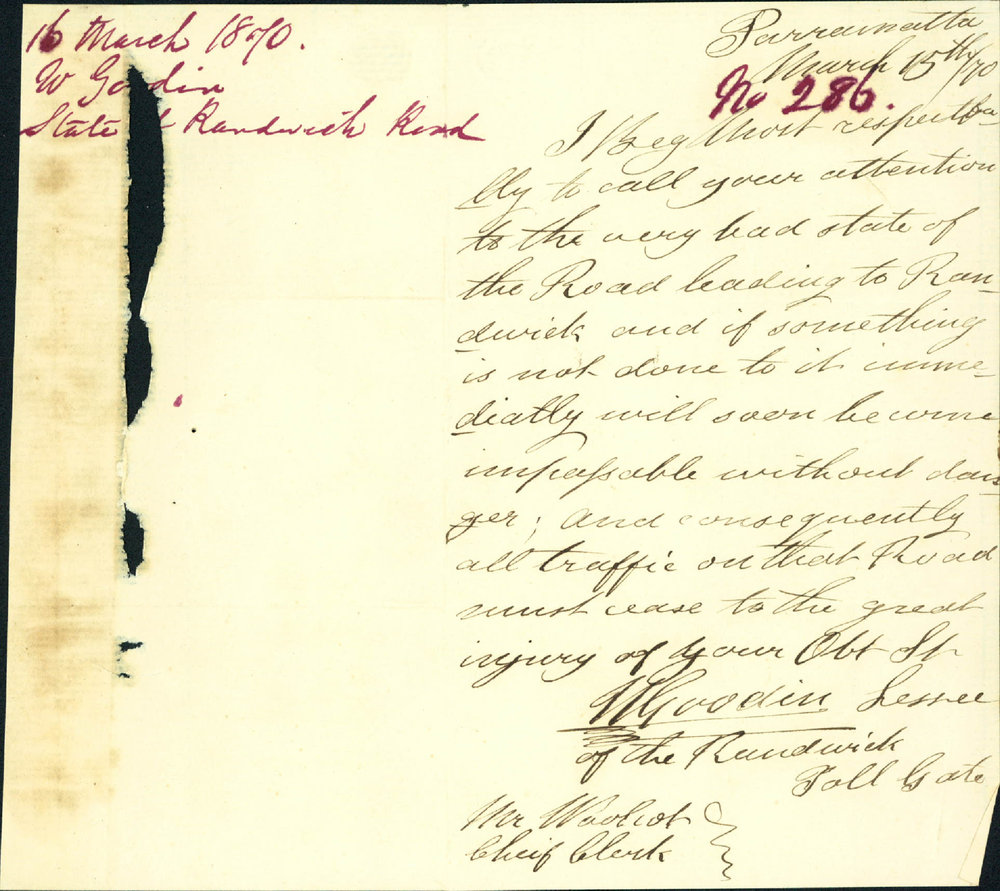 16 March 1870.
W Goodin
State of Randwick Road
Parramatta
March 15th/70
No 286.
I Beg Most respectfu-
lly to call your attention
to the very bad state of
the Road leading to Ran-
dwick and if something
is not done to it imme-
diatly will soon become
impassable without dan
ger; and consequently
all traffic on that Road
must cease to the great
injury of your Obt St
W Goodin Lessee
of the Randwick
Toll Gate
Mr Woolcot
Cheif Clerk